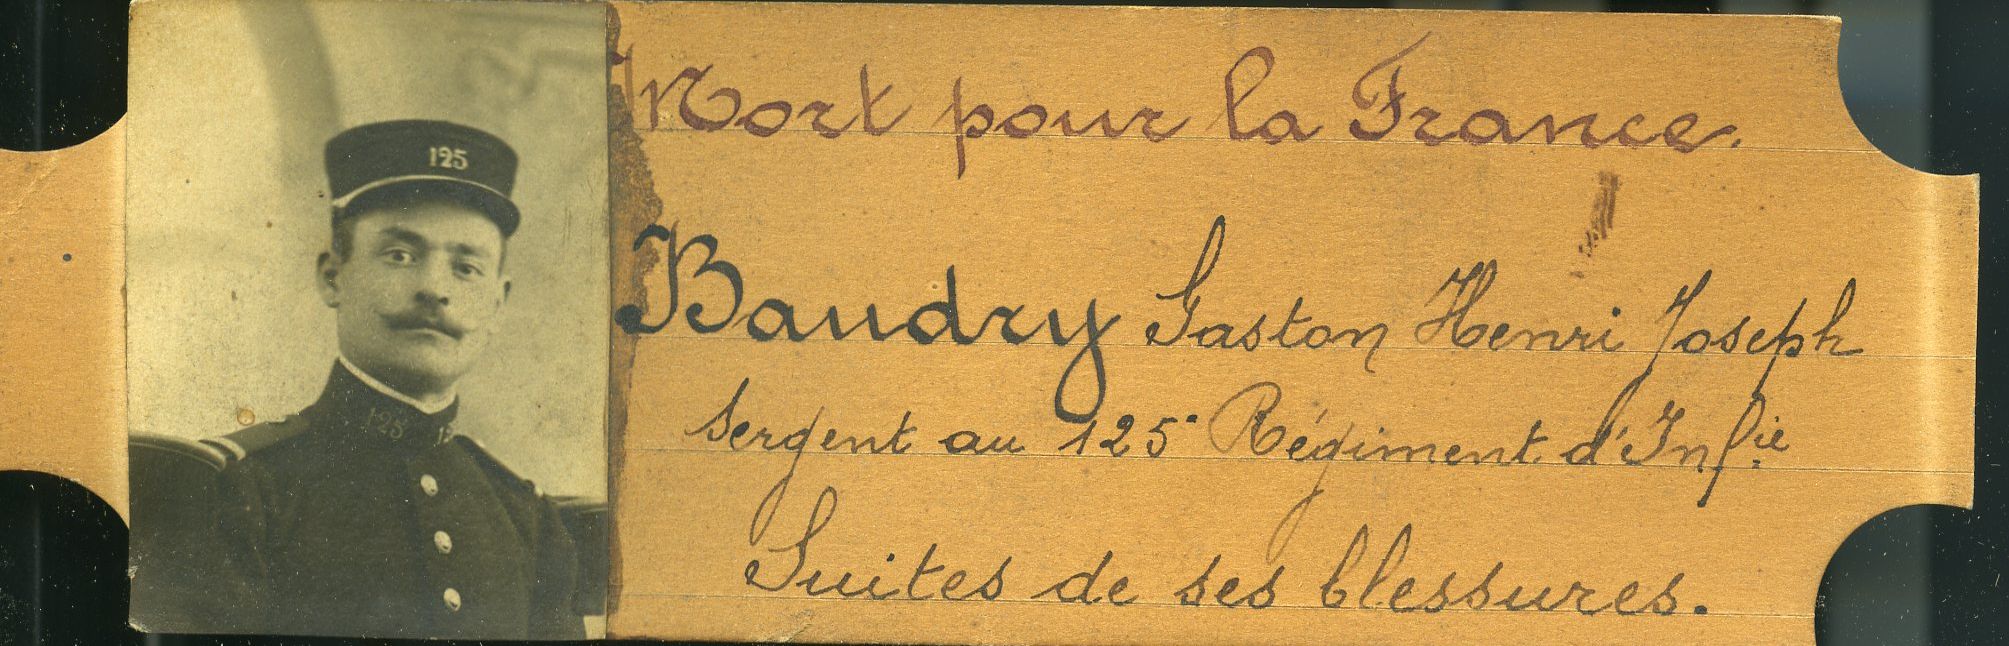 Mort pour la France.
125
Baudry Gaston Henri Joseph
125 12
sergent au 125e Régiment d'Infie
Suites de ses blessures.